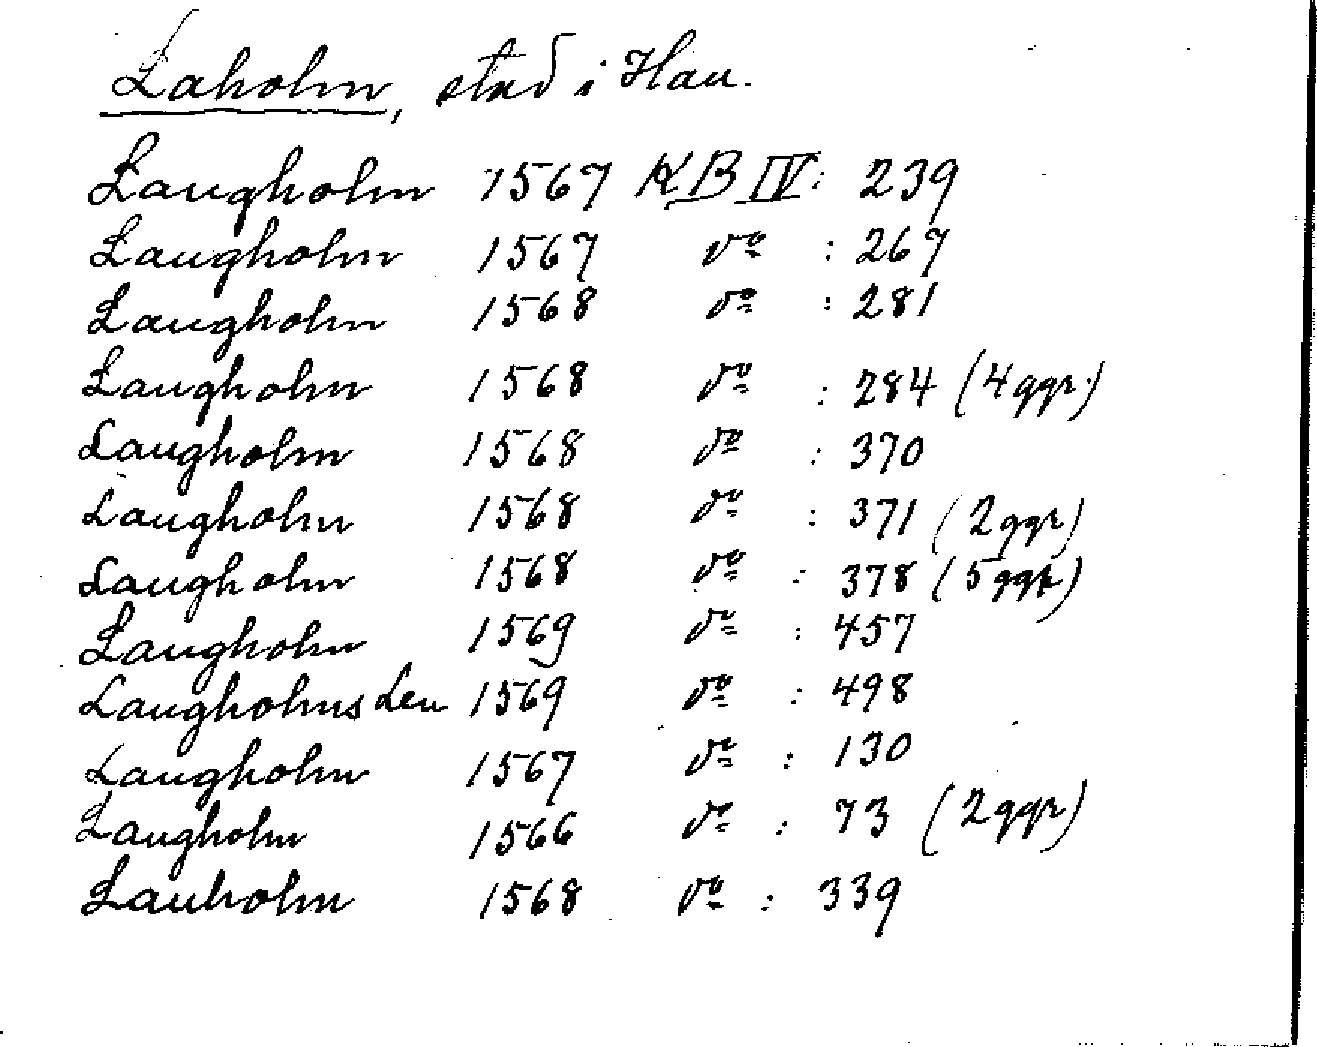 Laholm, stad i Hall.
Laugholm 1567 KB IV: 239
Laugholm 1567 do : 267
Laugholm 1568 do : 281
Laugholm 1568 do : 284 (4 ggr.)
Laugholm 1568 do : 370
Laugholm 1568 do : 371 (2 ggr)
Laugholm 1568 do : 378 (5 ggr)
Laugholm 1569 do : 457
Laugholms Len 1569 do : 498
Laugholm 1567 do : 130
Laugholm 1566 do : 73 (2 ggr)
Lauholm 1568 do : 339